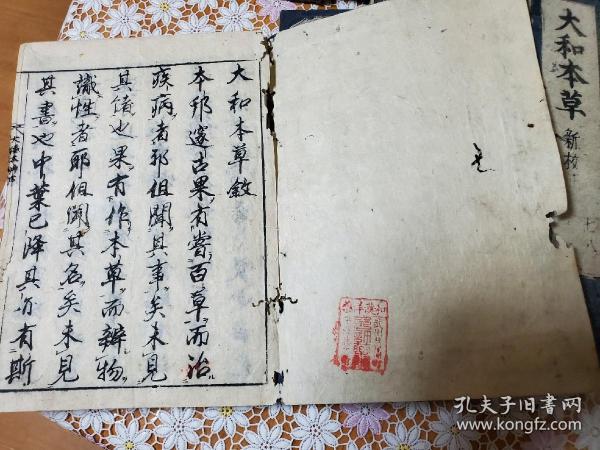 大和本草敘
本邦邃古果有嘗百草而治
疾病者邪但聞其事矣未見
其儔也果有作本草而辨物
識性者耶但聞其名矣未見
其書也中葉已降其有斯
大和本草
新校
孔夫子旧書网
www.kongfz.com